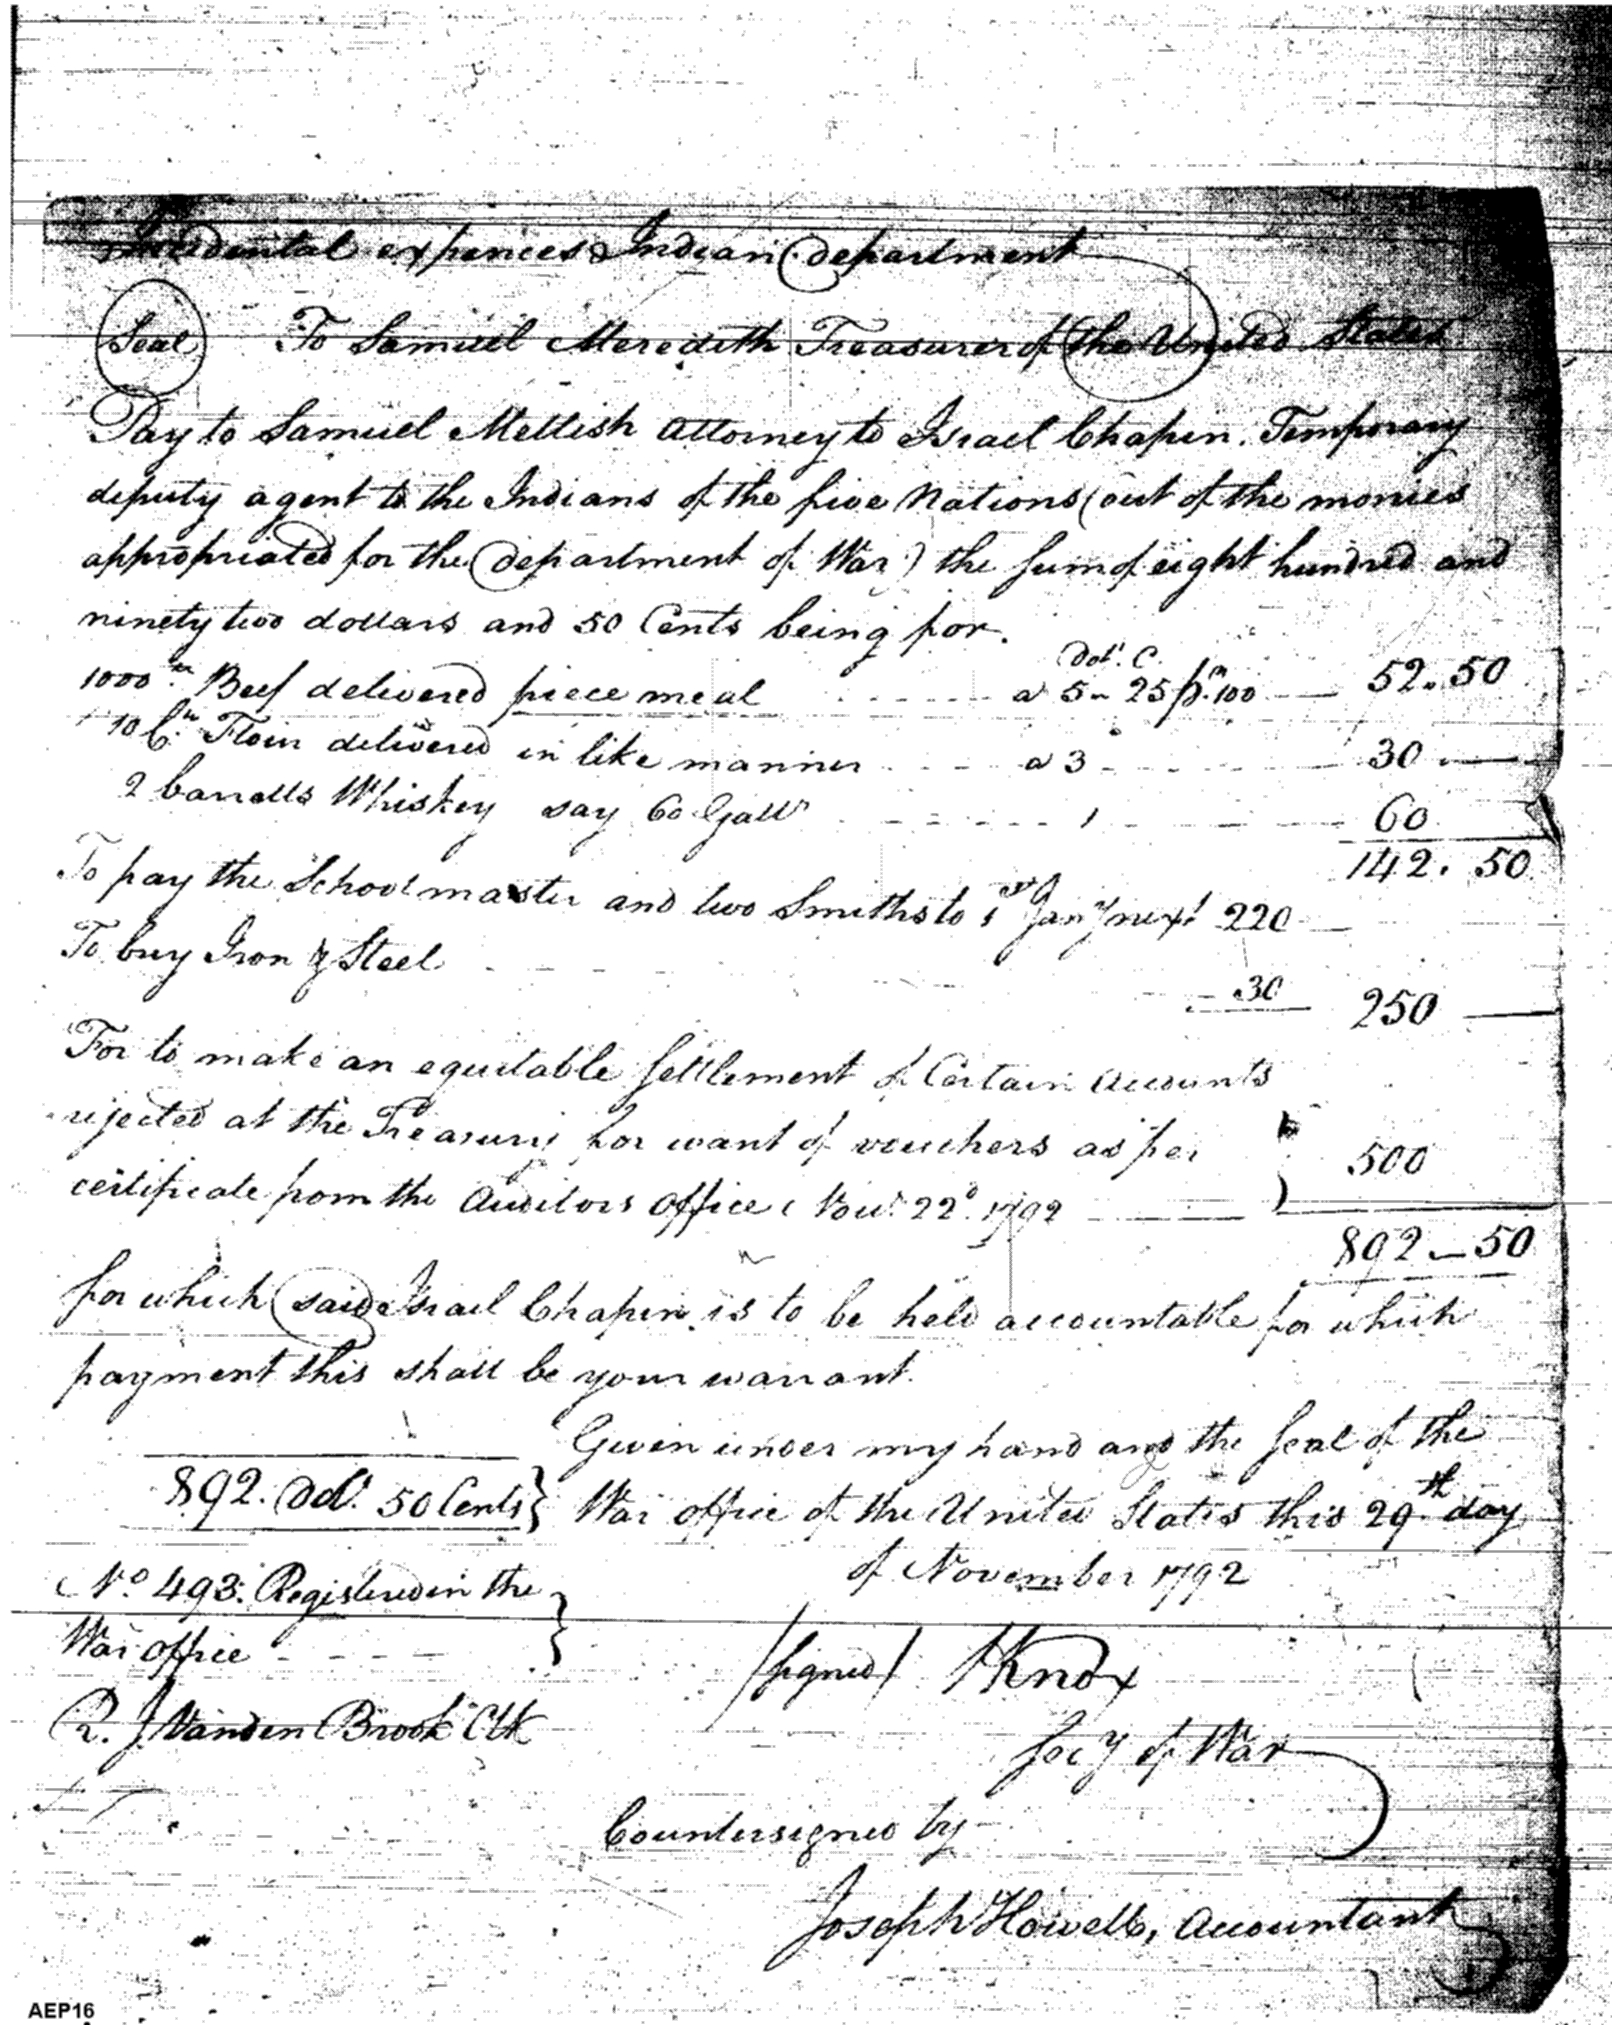 Incidental expences Indian department
Seal To Samuel Meredith Treasurer of the United States
Pay to Samuel Mellish attorney to Israel Chapin. Temporary
deputy agent to the Indians of the five Nations (out of the monies
appropriated for the department of War) the sum of eight hundred and
ninety two dollars and 50 Cents being for.
Dol.s C.
1000 Beef delivered piece meal a 5 - 25 p. 100 52.50
10 Flour delivered in like manner a 3 30
2 barrells Whiskey say 60 Galls 1 60
142.50
To pay the Schoolmaster and two Smiths to 1st Jany next 220
To buy Iron & Steel
30 250
For to make an equitable settlement of Certain accounts
rejected at the Treasury for want of vouchers as per 500
certificate from the Auditors office Nov. 22d. 1792
892-50
for which said Israel Chapin is to be held accountable for which
payment this shall be your warrant.
Given under my hand and the Seal of the
892. Dol.s 50 Cents } War office of the United States this 29th day
of November 1792
No. 493. Registered in the
War office
(signed) HKnox
R. J. Vanden Brook Clk
Secy of War
Countersigned by
Joseph Howell, Accountant
AEP16